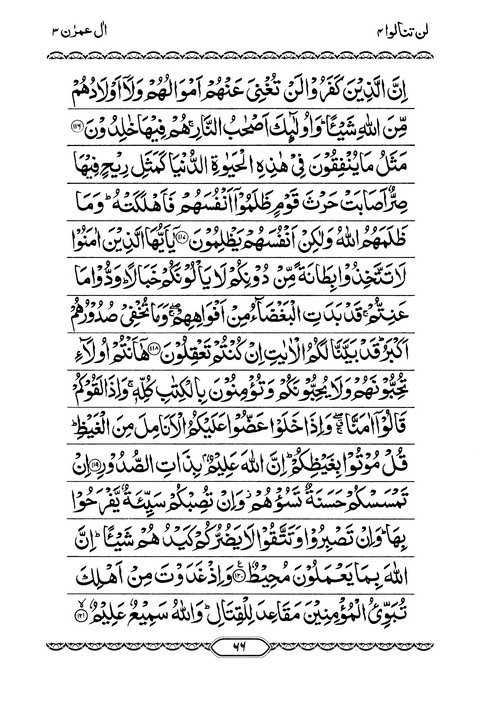 لن تنالوا ۴
اٰل عمرٰن ۳
اِنَّ الَّذِیْنَ كَفَرُوْا لَنْ تُغْنِیَ عَنْهُمْ اَمْوَالُهُمْ وَلَاۤ اَوْلَادُهُمْ
مِّنَ اللّٰهِ شَیْـًٔا ؕ وَاُولٰٓىِٕكَ اَصْحٰبُ النَّارِ ۚ هُمْ فِیْهَا خٰلِدُوْنَ ﴿۱۱۶﴾
مَثَلُ مَا یُنْفِقُوْنَ فِیْ هٰذِهِ الْحَیٰوةِ الدُّنْیَا كَمَثَلِ رِیْحٍ فِیْهَا
صِرٌّ اَصَابَتْ حَرْثَ قَوْمٍ ظَلَمُوْۤا اَنْفُسَهُمْ فَاَهْلَكَتْهُ ؕ وَمَا
ظَلَمَهُمُ اللّٰهُ وَلٰكِنْ اَنْفُسَهُمْ یَظْلِمُوْنَ ﴿۱۱۷﴾ یٰۤاَیُّهَا الَّذِیْنَ اٰمَنُوْا
لَا تَتَّخِذُوْا بِطَانَةً مِّنْ دُوْنِكُمْ لَا یَاْلُوْنَكُمْ خَبَالًا ؕ وَدُّوْا مَا
عَنِتُّمْ ۚ قَدْ بَدَتِ الْبَغْضَآءُ مِنْ اَفْوَاهِهِمْ ۖۚ وَمَا تُخْفِیْ صُدُوْرُهُمْ
اَكْبَرُ ؕ قَدْ بَیَّنَّا لَكُمُ الْاٰیٰتِ اِنْ كُنْتُمْ تَعْقِلُوْنَ ﴿۱۱۸﴾ هٰۤاَنْتُمْ اُولَآءِ
تُحِبُّوْنَهُمْ وَلَا یُحِبُّوْنَكُمْ وَتُؤْمِنُوْنَ بِالْكِتٰبِ كُلِّهٖ ۚ وَاِذَا لَقُوْكُمْ
قَالُوْۤا اٰمَنَّا ۖۚ وَاِذَا خَلَوْا عَضُّوْا عَلَیْكُمُ الْاَنَامِلَ مِنَ الْغَیْظِ ؕ
قُلْ مُوْتُوْا بِغَیْظِكُمْ ؕ اِنَّ اللّٰهَ عَلِیْمٌۢ بِذَاتِ الصُّدُوْرِ ﴿۱۱۹﴾ اِنْ
تَمْسَسْكُمْ حَسَنَةٌ تَسُؤْهُمْ ؗ وَاِنْ تُصِبْكُمْ سَیِّئَةٌ یَّفْرَحُوْا
بِهَا ؕ وَاِنْ تَصْبِرُوْا وَتَتَّقُوْا لَا یَضُرُّكُمْ كَیْدُهُمْ شَیْـًٔا ؕ اِنَّ
اللّٰهَ بِمَا یَعْمَلُوْنَ مُحِیْطٌ ﴿۱۲۰﴾ وَاِذْ غَدَوْتَ مِنْ اَهْلِكَ
تُبَوِّئُ الْمُؤْمِنِیْنَ مَقَاعِدَ لِلْقِتَالِ ؕ وَاللّٰهُ سَمِیْعٌ عَلِیْمٌ ﴿۱۲۱﴾
۶۶